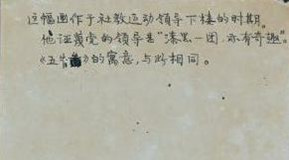 这幅画作于社教运动领导下楼的时期。
他污蔑党的领导是“漆黑一团，亦有奇趣”。
《五牛》的寓意，与此相同。